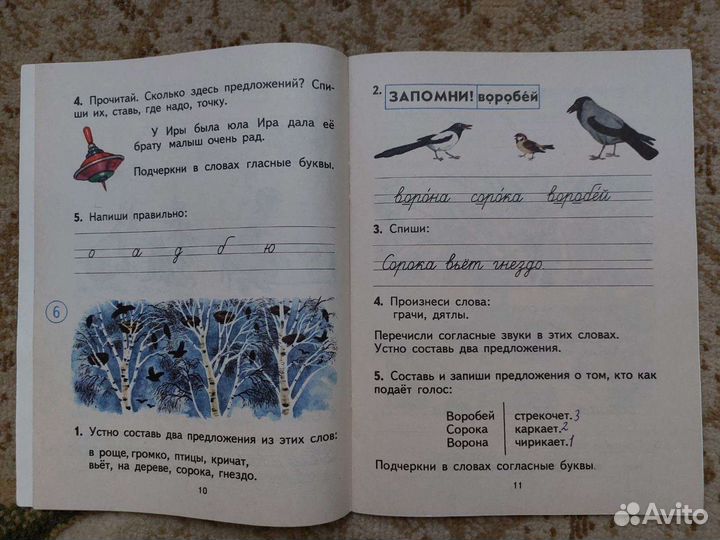 4. Прочитай. Сколько здесь предложений? Спи-
ши их, ставь, где надо, точку.
У Иры была юла Ира дала её
брату малыш очень рад.
Подчеркни в словах гласные буквы.
5. Напиши правильно:
о а д б ю
6
1. Устно составь два предложения из этих слов:
в роще, громко, птицы, кричат,
вьёт, на дереве, сорока, гнездо.
10
2. ЗАПОМНИ! воробе́й
воро́на соро́ка воробе́й
3. Спиши:
Сорока вьёт гнездо.
4. Произнеси слова:
грачи, дятлы.
Перечисли согласные звуки в этих словах.
Устно составь два предложения.
5. Составь и запиши предложения о том, кто как
подаёт голос:
Воробей стрекочет. 3
Сорока каркает. 2
Ворона чирикает. 1
Подчеркни в словах согласные буквы.
11
Avito